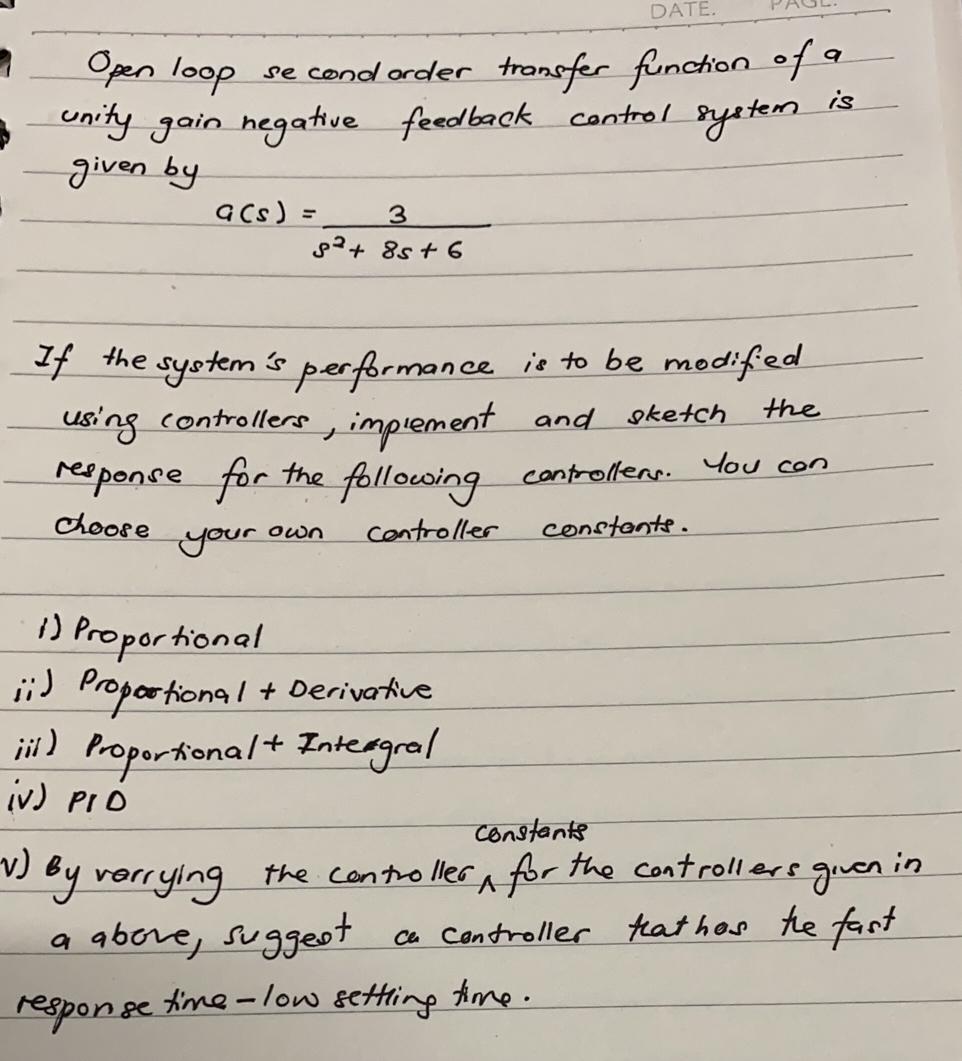 DATE. PAGE.
Open loop second order transfer function of a
unity gain negative feedback control system is
given by
G(s) = 3
s² + 8s + 6
If the system's performance is to be modified
using controllers, implement and sketch the
response for the following controllers. You can
choose your own controller constants.
i) Proportional
ii) Proportional + Derivative
iii) Proportional + Integral
iv) PID
constants
v) By varrying the controller ^ for the controllers given in
a above, suggest a controller that has the fast
response time - low settling time.